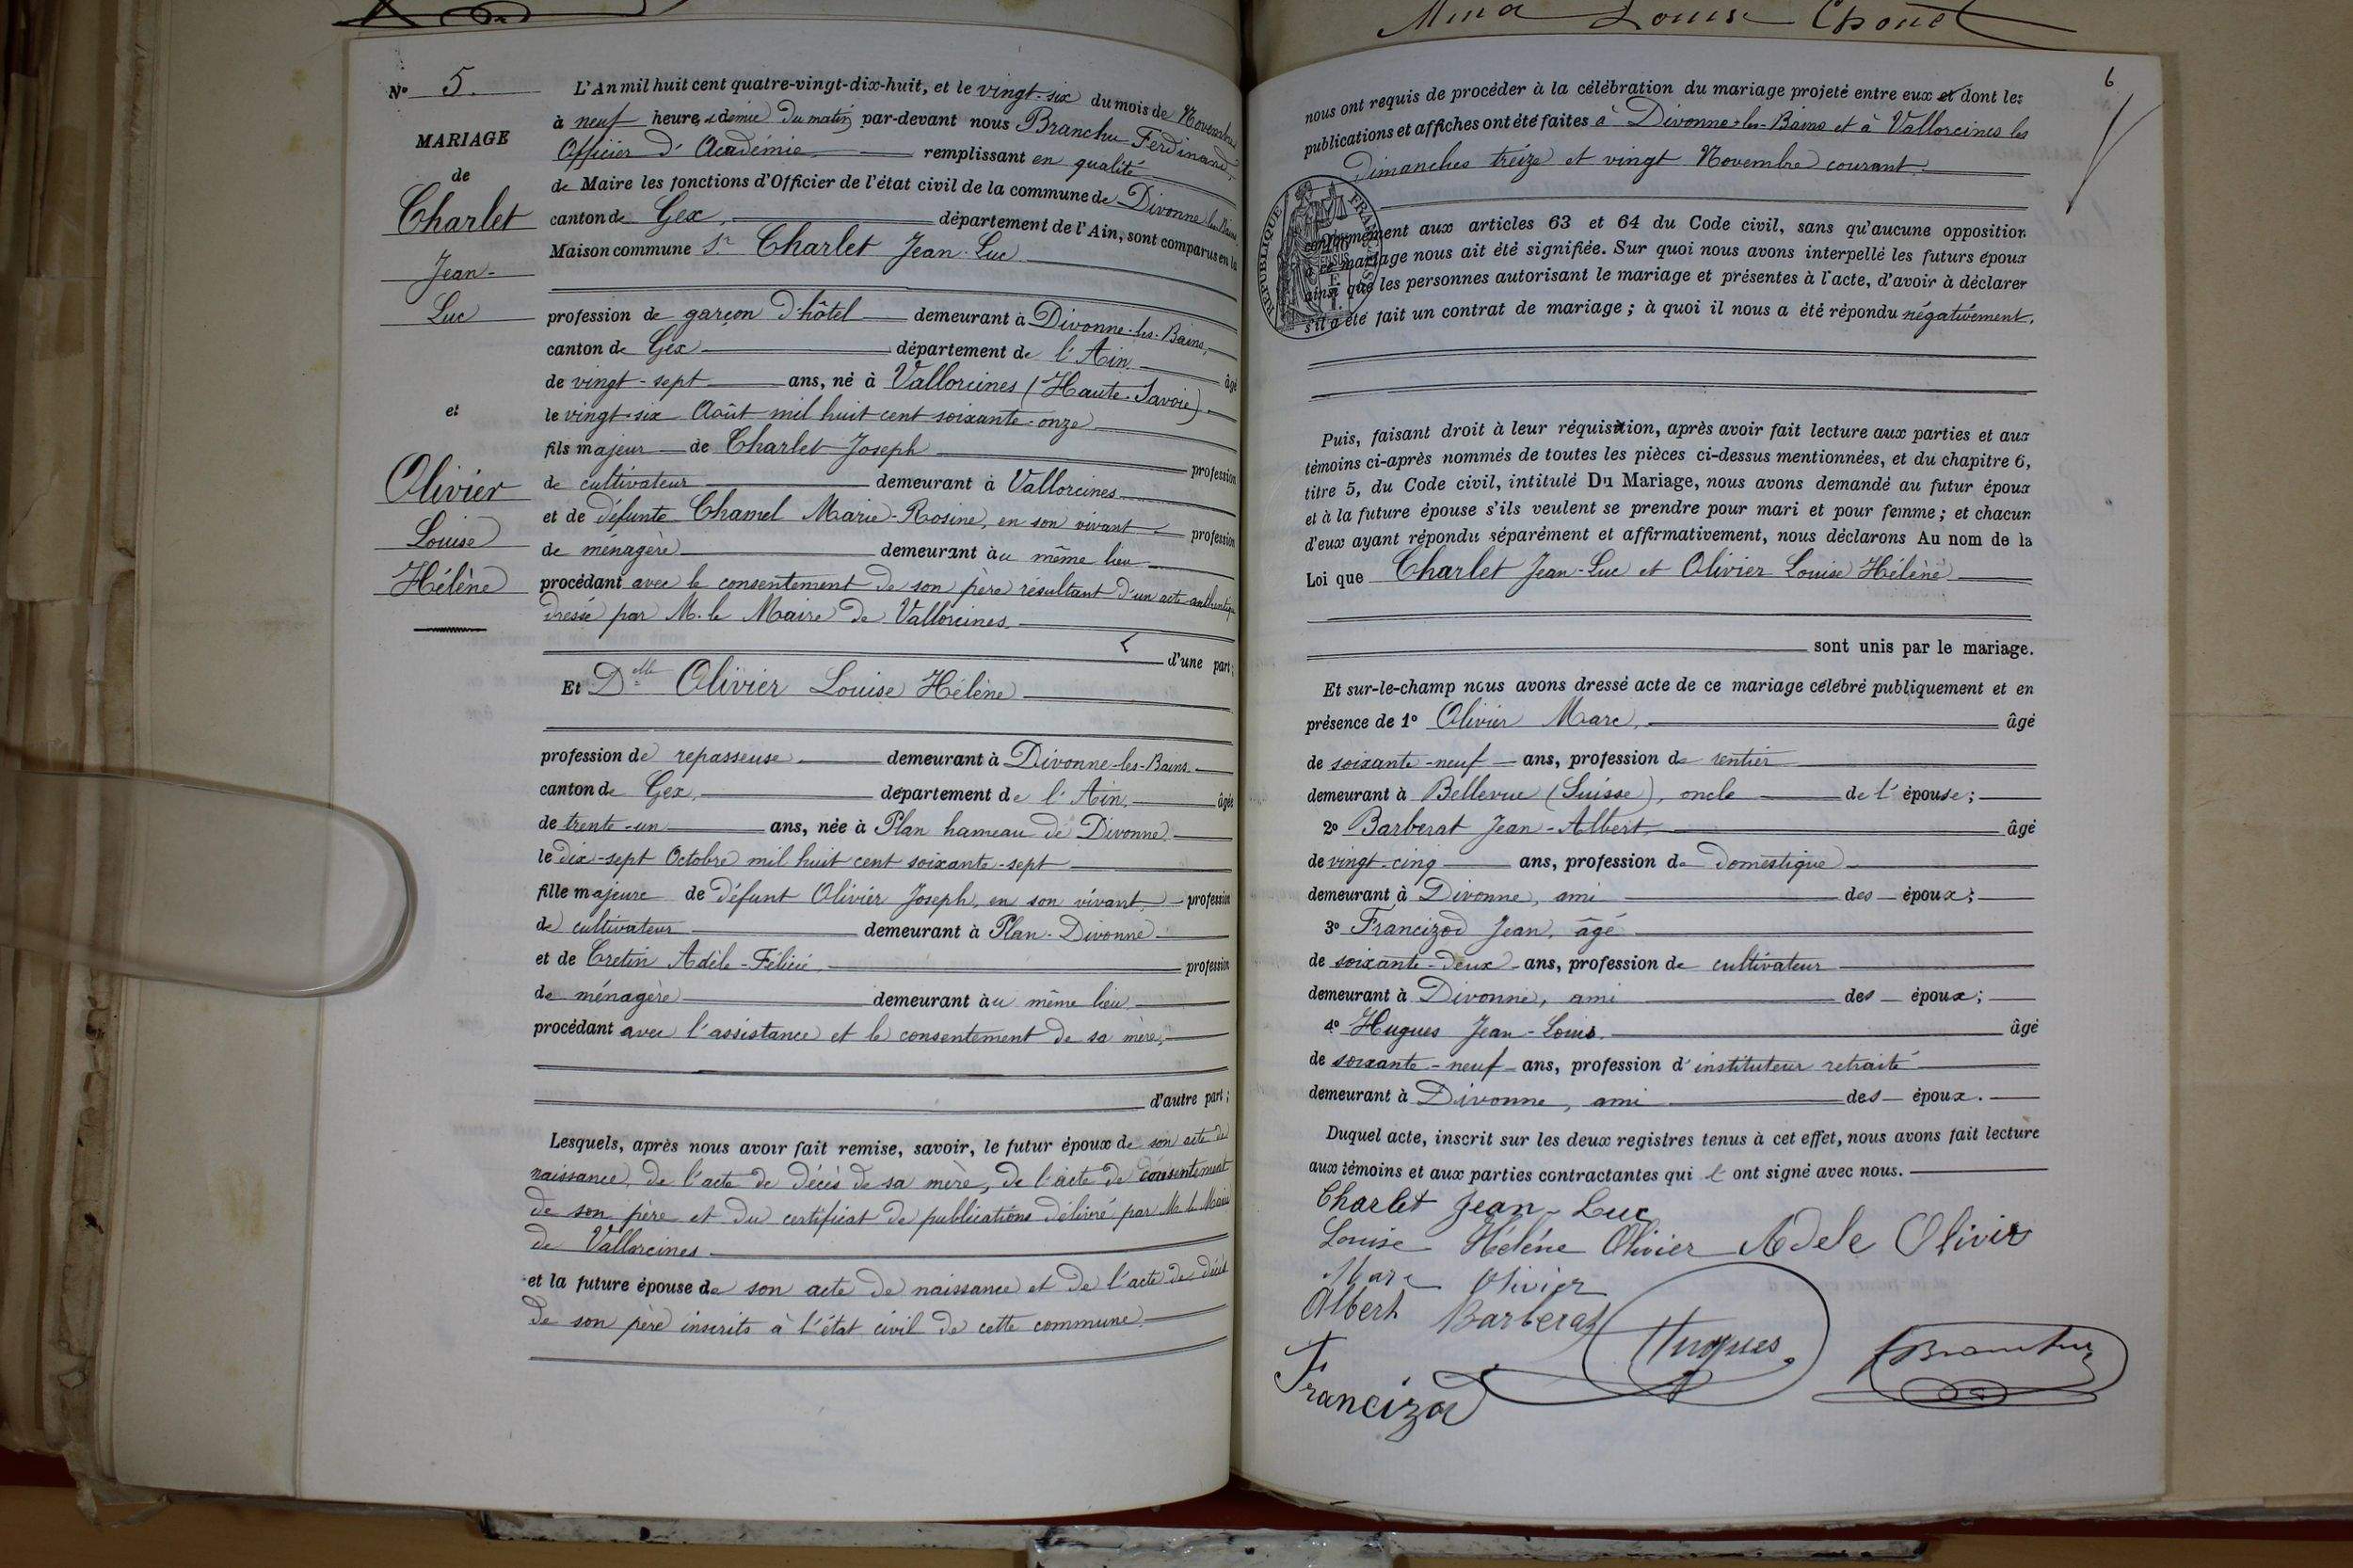 Louise Chouet
Nº 5.
MARIAGE
de
Charlet
Jean-
Luc
et
Olivier
Louise
Hélène
L'An mil huit cent quatre-vingt-dix-huit, et le vingt-six du mois de Novembre
à neuf heures et demie du matin, par-devant nous Branchu Ferdinand,
Officier d'Académie remplissant en qualité
de Maire les fonctions d'Officier de l'état civil de la commune de Divonne-les-Bains
canton de Gex, département de l'Ain, sont comparus en la
Maison commune Sr Charlet Jean-Luc
profession de garçon d'hôtel demeurant à Divonne-les-Bains,
canton de Gex département de l'Ain. âgé
de vingt-sept ans, né à Vallorcines (Haute-Savoie)
le vingt-six Août mil huit cent soixante-onze
fils majeur de Charlet Joseph profession
de cultivateur demeurant à Vallorcines
et de défunte Chamel Marie-Rosine, en son vivant profession
de ménagère demeurant au même lieu
procédant avec le consentement de son père résultant d'un acte authentique
dressé par M. le Maire de Vallorcines.
d'une part;
Et Dlle Olivier Louise Hélène
profession de repasseuse demeurant à Divonne-les-Bains.
canton de Gex, département de l'Ain. âgée
de trente-un ans, née à Plan hameau de Divonne
le dix-sept Octobre mil huit cent soixante-sept
fille majeure de défunt Olivier Joseph, en son vivant, profession
de cultivateur demeurant à Plan-Divonne
et de Cretin Adèle-Félicie profession
de ménagère demeurant au même lieu
procédant avec l'assistance et le consentement de sa mère,
d'autre part;
Lesquels, après nous avoir fait remise, savoir, le futur époux de son acte de
naissance, de l'acte de décès de sa mère, de l'acte de consentement
de son père et du certificat de publications délivré par M. le Maire
de Vallorcines
et la future épouse de son acte de naissance et de l'acte de décès
de son père inscrits à l'état civil de cette commune
6
nous ont requis de procéder à la célébration du mariage projeté entre eux et dont les
publications et affiches ont été faites à Divonne-les-Bains et à Vallorcines les
Dimanches treize et vingt Novembre courant.
RÉPUBLIQUE FRANÇAISE
conformément aux articles 63 et 64 du Code civil, sans qu'aucune opposition
à ce mariage nous ait été signifiée. Sur quoi nous avons interpellé les futurs époux
ainsi que les personnes autorisant le mariage et présentes à l'acte, d'avoir à déclarer
s'il a été fait un contrat de mariage; à quoi il nous a été répondu négativement.
Puis, faisant droit à leur réquisition, après avoir fait lecture aux parties et aux
témoins ci-après nommés de toutes les pièces ci-dessus mentionnées, et du chapitre 6,
titre 5, du Code civil, intitulé Du Mariage, nous avons demandé au futur époux
et à la future épouse s'ils veulent se prendre pour mari et pour femme; et chacun
d'eux ayant répondu séparément et affirmativement, nous déclarons Au nom de la
Loi que Charlet Jean-Luc et Olivier Louise Hélène
sont unis par le mariage.
Et sur-le-champ nous avons dressé acte de ce mariage célébré publiquement et en
présence de 1º Olivier Marc, âgé
de soixante-neuf ans, profession de rentier
demeurant à Bellevue (Suisse), oncle de l'épouse;
2º Barberat Jean-Albert âgé
de vingt-cinq ans, profession de domestique
demeurant à Divonne, ami des époux;
3º Francizod Jean, âgé
de soixante-deux ans, profession de cultivateur
demeurant à Divonne, ami des époux;
4º Hugues Jean-Louis. âgé
de soixante-neuf ans, profession d'instituteur retraité
demeurant à Divonne, ami des époux.
Duquel acte, inscrit sur les deux registres tenus à cet effet, nous avons fait lecture
aux témoins et aux parties contractantes qui l'ont signé avec nous.
Charlet Jean-Luc
Louise Hélène Olivier Adele Olivier
Marc Olivier
Albert Barberat Hugues
FBranchu
Francizod